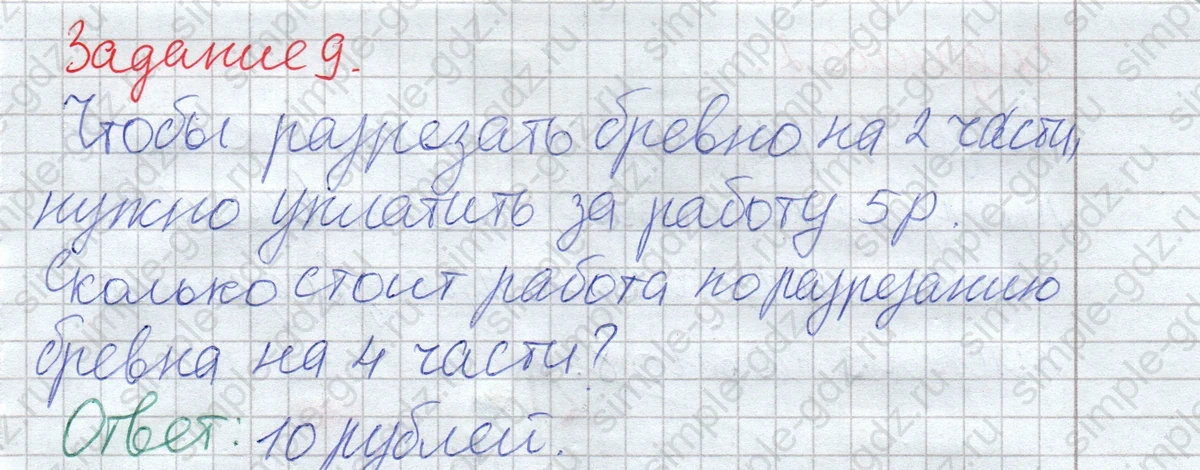 Задание 9.
Чтобы разрезать бревно на 2 части,
нужно уплатить за работу 5 р.
Сколько стоит работа по разрезанию
бревна на 4 части?
Ответ: 10 рублей.